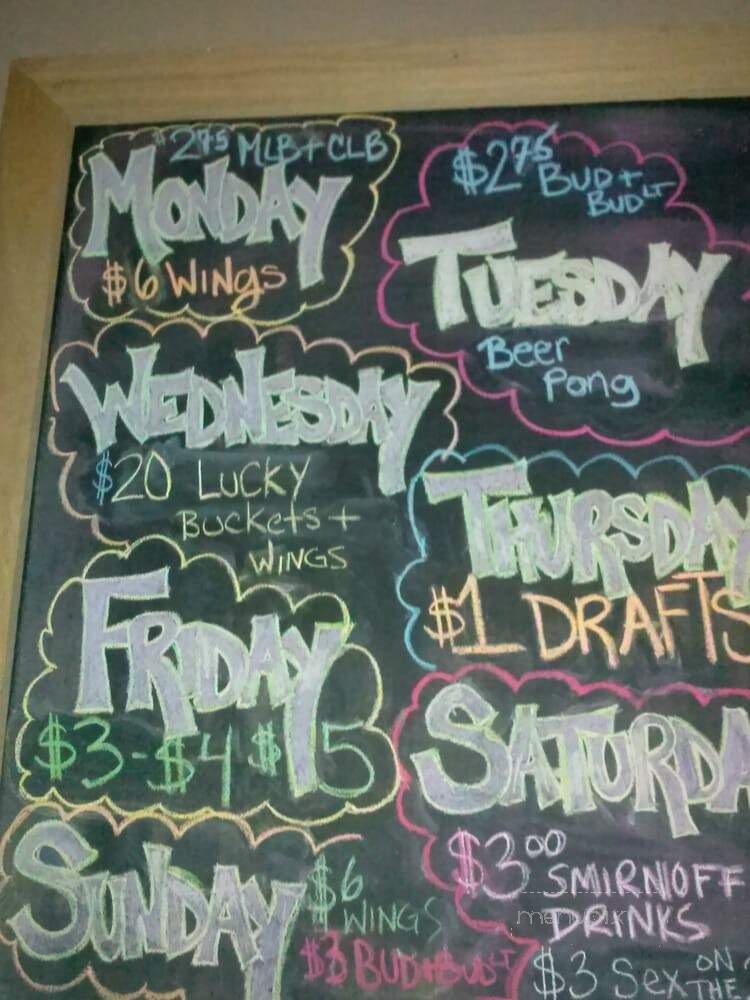 $2.75 MLB + CLB
MONDAY
$6 WINGS
$2.75 BUD +
BUD LT
TUESDAY
Beer
Pong
WEDNESDAY
$20 LUCKY
BUCKETS +
WINGS
THURSDAY
$1 DRAFTS
FRIDAY
$3 - $4 $5
SATURDA
$3.00 SMIRNOFF
DRINKS
$3 Sex ON
THE
SUNDAY
$6
WINGS
$3 BUD + BUD LT
menupix